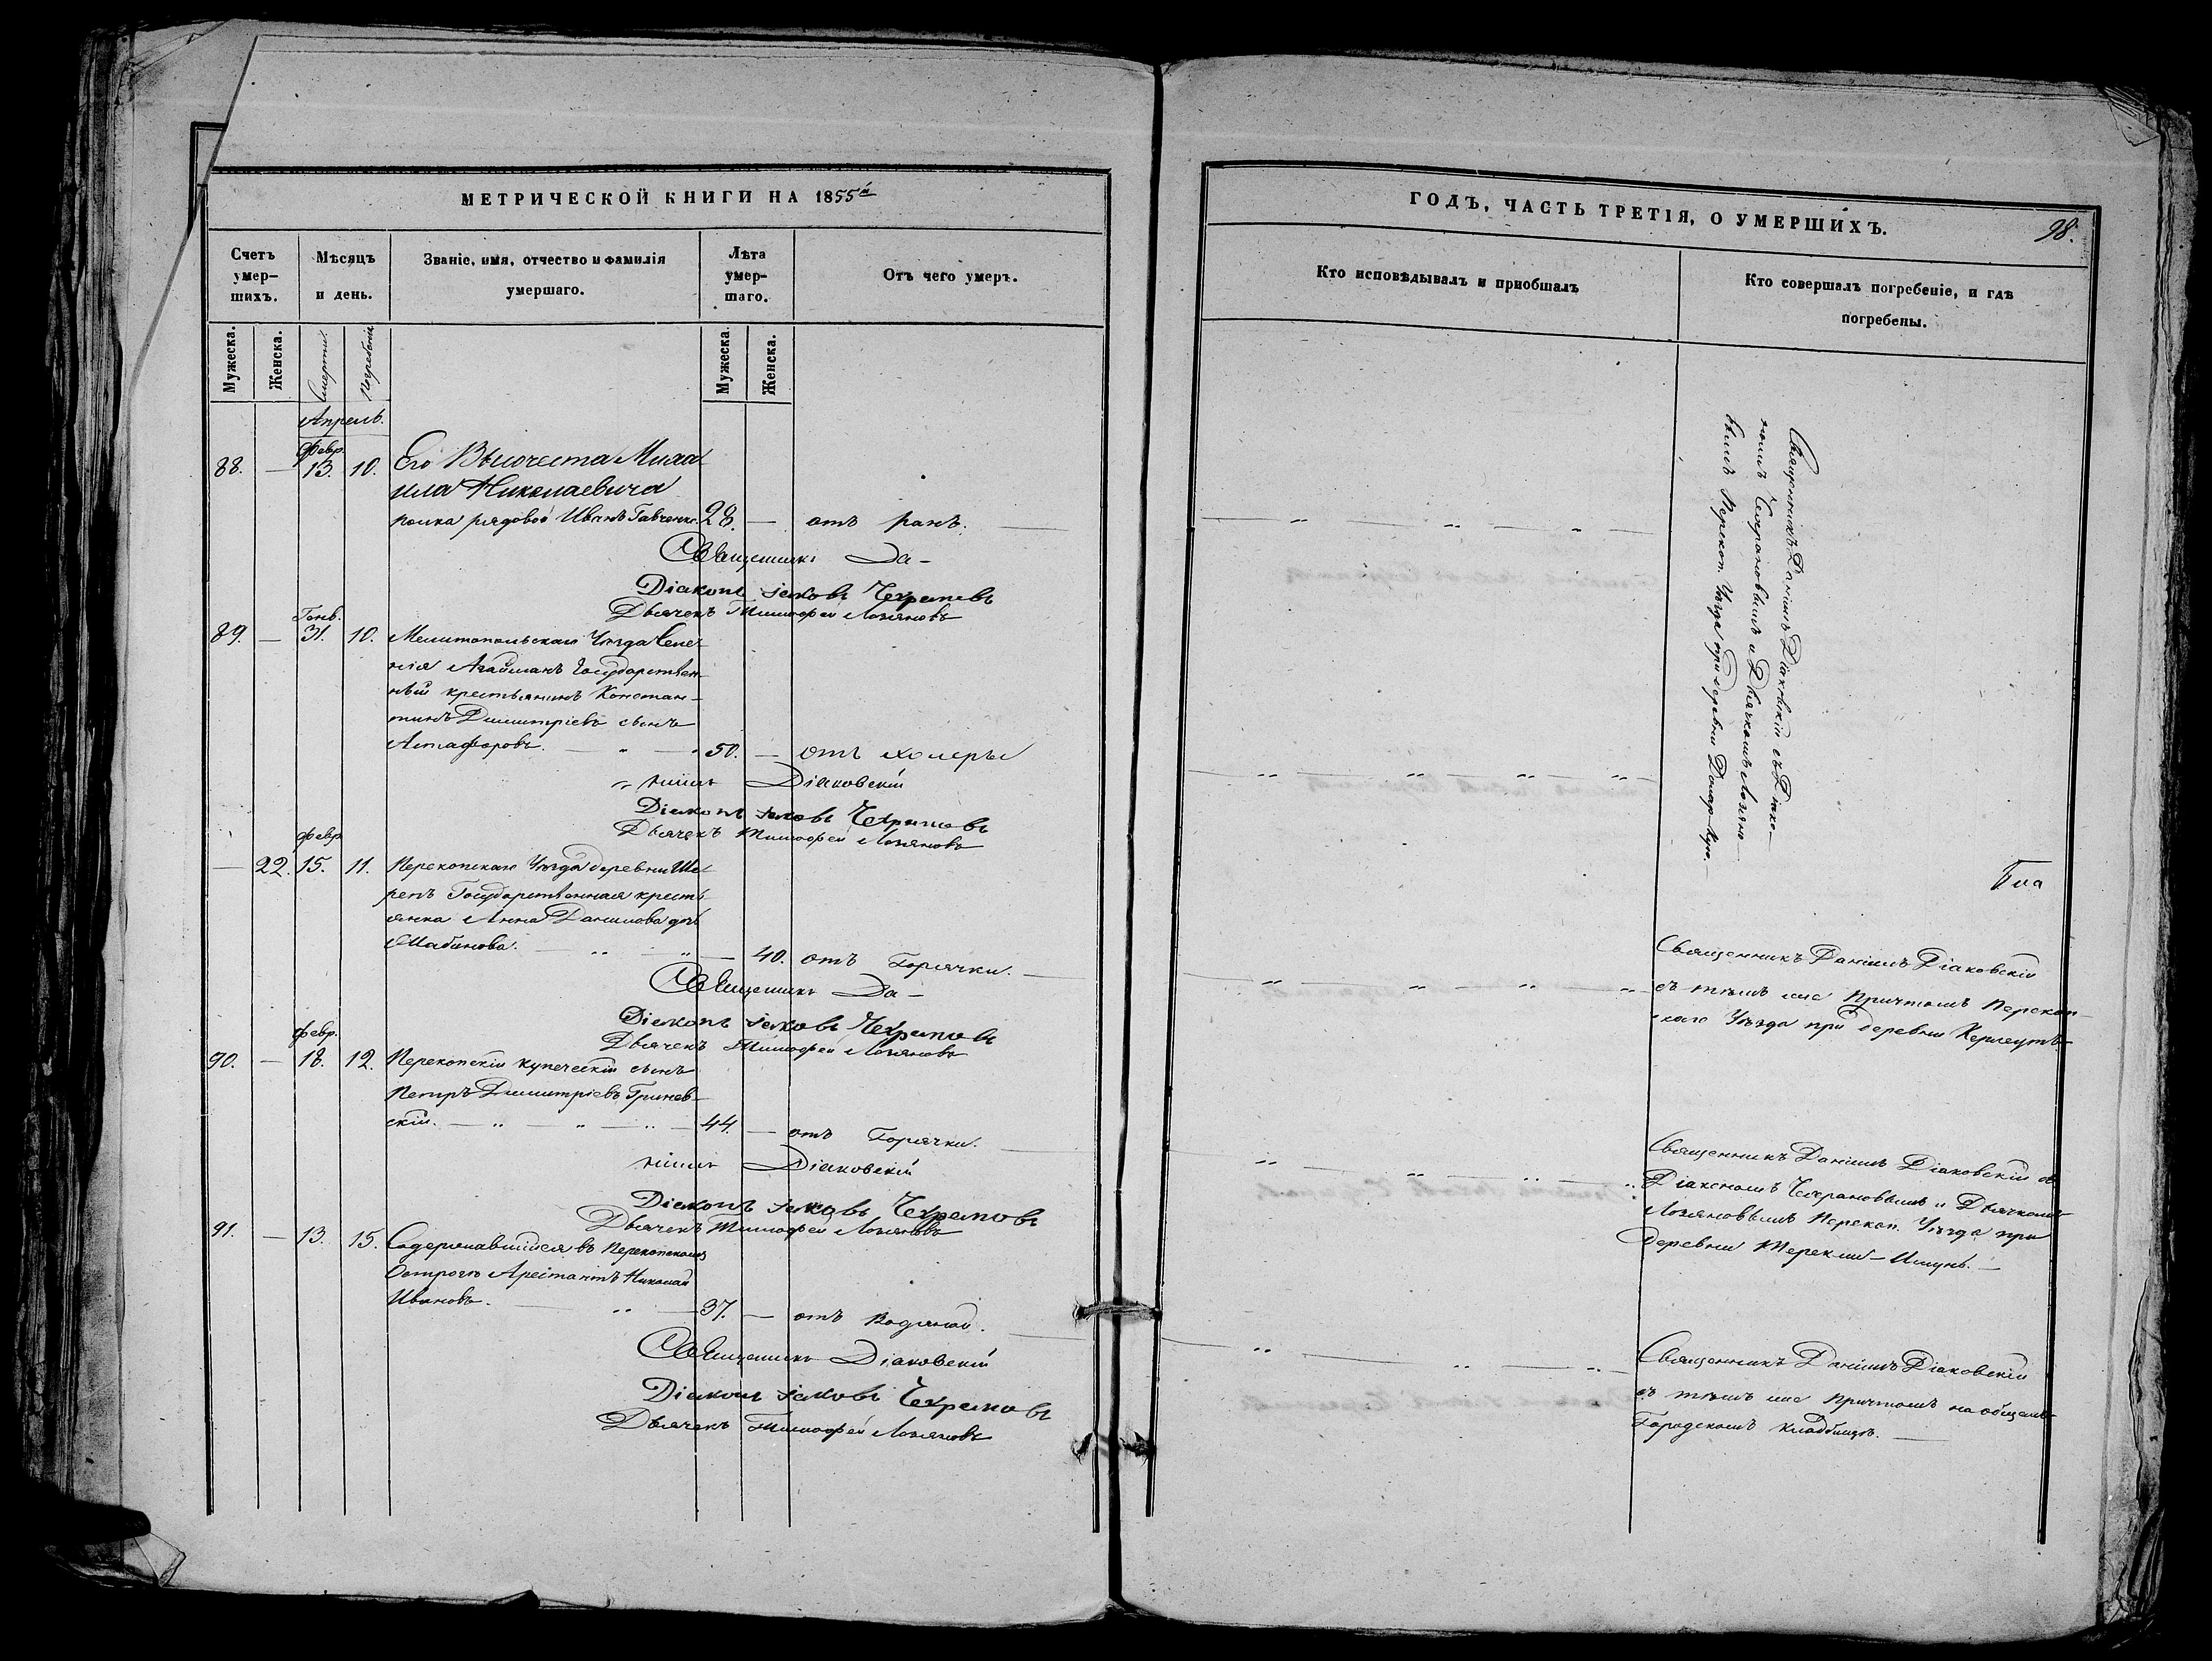 МЕТРИЧЕСКОЙ КНИГИ НА 1855й
Счетъ умер-шихъ.
Мѣсяцъ и день.
Званіе, имя, отчество и фамилія умершаго.
Лѣта умер-шаго.
Отъ чего умеръ.
Мужеска. Женска. Смерти Погребенія Мужеска Женска.
Апрель.
Февр.
88. — 13. 10. Его Высочества Миха
ила Николаевича
полка рядовой Иванъ Гавченко 28. — отъ ранъ. —
Священникъ Да-
Діаконъ Іаковъ Чехрановъ
Дьячекъ Тимофей Лозяновъ
Генв.
89. — 31. 10. Мелитопольскаго Уѣзда Селе
нія Агайманъ Государствен-
ный крестьянинъ Констан-
тинъ Димитріевъ сынъ
Астафоровъ. — " — 50. — отъ холеры
ніилъ Діаковскій
Діаконъ Іаковъ Чехрановъ
Дьячекъ Тимофей Лозяновъ
Февр
— 22. 15. 11. Перекопскаго Уѣзда деревни
репъ Государственная кресть
янка Анна Данилова дочь
Шабанова. — " — " — 40. отъ Горячки. —
Священникъ Да-
Діаконъ Іаковъ Чехрановъ
Дьячекъ Тимофей Лозяновъ
Февр.
90. — 18. 12. Перекопскій купеческій сынъ
Петръ Димитріевъ Гринев-
скій. — " — " — " — 44. — отъ Горячки. —
ніилъ Діаковскій
Діаконъ Іаковъ Чехрановъ
Дьячекъ Тимофей Лозяновъ
91. — 13. 15. Содержавшійся въ Перекопскомъ
Острогѣ Арестантъ Николай
Ивановъ. — " — 37. — отъ Водяной. —
Священникъ Діаковскій
Діаконъ Іаковъ Чехрановъ
Дьячекъ Тимофей Лозяновъ
ГОДЪ, ЧАСТЬ ТРЕТІЯ, О УМЕРШИХЪ.
98.
Кто исповѣдывалъ и пріобщалъ
Кто совершалъ погребеніе, и гдѣ
погребены.
Священникъ Даніилъ Діаковскій съ Діако-
номъ Чехрановымъ и Дьячкомъ Лозяно
вымъ Перекоп. Уѣзда при деревни
Священникъ Даніилъ Діаковскій
съ тѣмъ же Причтомъ Перекоп-
скаго Уѣзда при деревни
Священникъ Даніилъ Діаковскій съ
Діакономъ Чехрановымъ и Дьячкомъ
Лозяновымъ Перекоп. Уѣзда при
деревни Терекли-Ишунь. —
Священникъ Даніилъ Діаковскій
съ тѣмъ же Причтомъ на общемъ
Городскомъ кладбищѣ. —